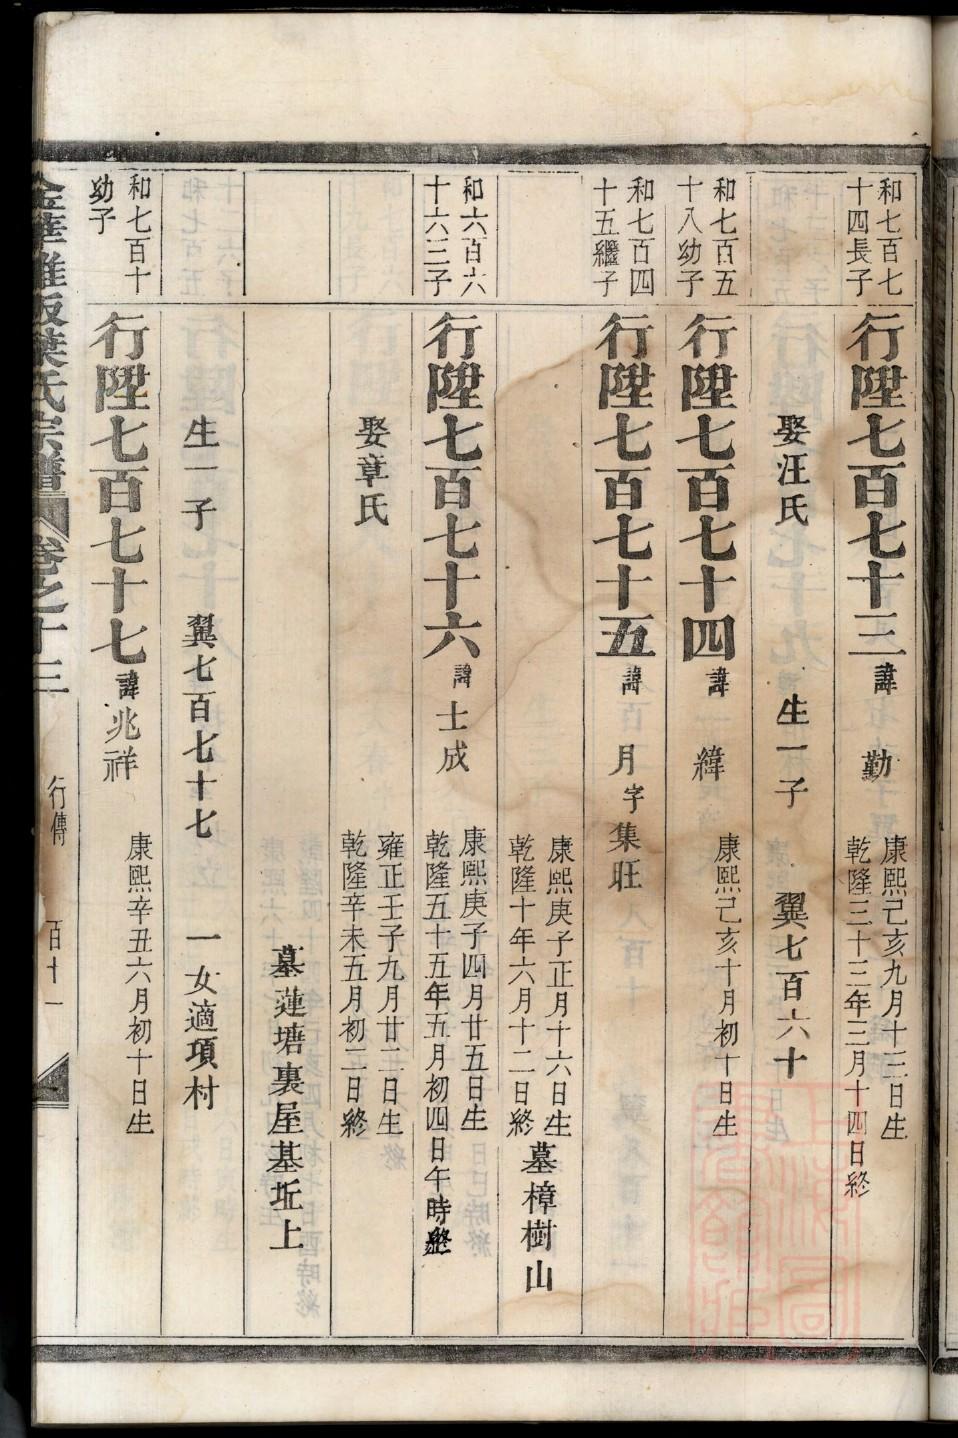 和七百七
十四長子
行陞七百七十三
諱
勤
康熙己亥九月十三日生
乾隆三十三年三月十四日終
娶汪氏
生一子
翼七百六十
和七百五
十八幼子
行陞七百七十四
諱
緯
康熙己亥十月初十日生
和七百四
十五繼子
行陞七百七十五
諱
月字集旺
康熙庚子正月十六日生
乾隆十年六月十二日終
墓樟樹山
和六百六
十六三子
行陞七百七十六
諱
士成
康熙庚子四月廿五日生
乾隆五十五年五月初四日午時終
娶章氏
雍正壬子九月廿二日生
乾隆辛未五月初二日終
墓蓮塘裏屋基坵上
生一子
翼七百七十七
一女適項村
和七百十
幼子
行陞七百七十七
諱
兆祥
康熙辛丑六月初十日生
葉氏宗譜
卷之十三
行傳
百十一